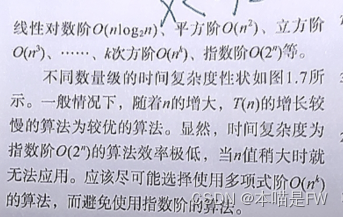 线性对数阶O(nlog₂n)、平方阶O(n²)、立方阶
O(n³)、……、k次方阶O(nᵏ)、指数阶O(2ⁿ)等。
不同数量级的时间复杂度性状如图1.7所
示。一般情况下，随着n的增大，T(n)的增长较
慢的算法为较优的算法。显然，时间复杂度为
指数阶O(2ⁿ)的算法效率极低，当n值稍大时就
无法应用。应该尽可能选择使用多项式阶O(nᵏ)
的算法，而避免使用指数阶的算法。
CSDN @本喵是FW